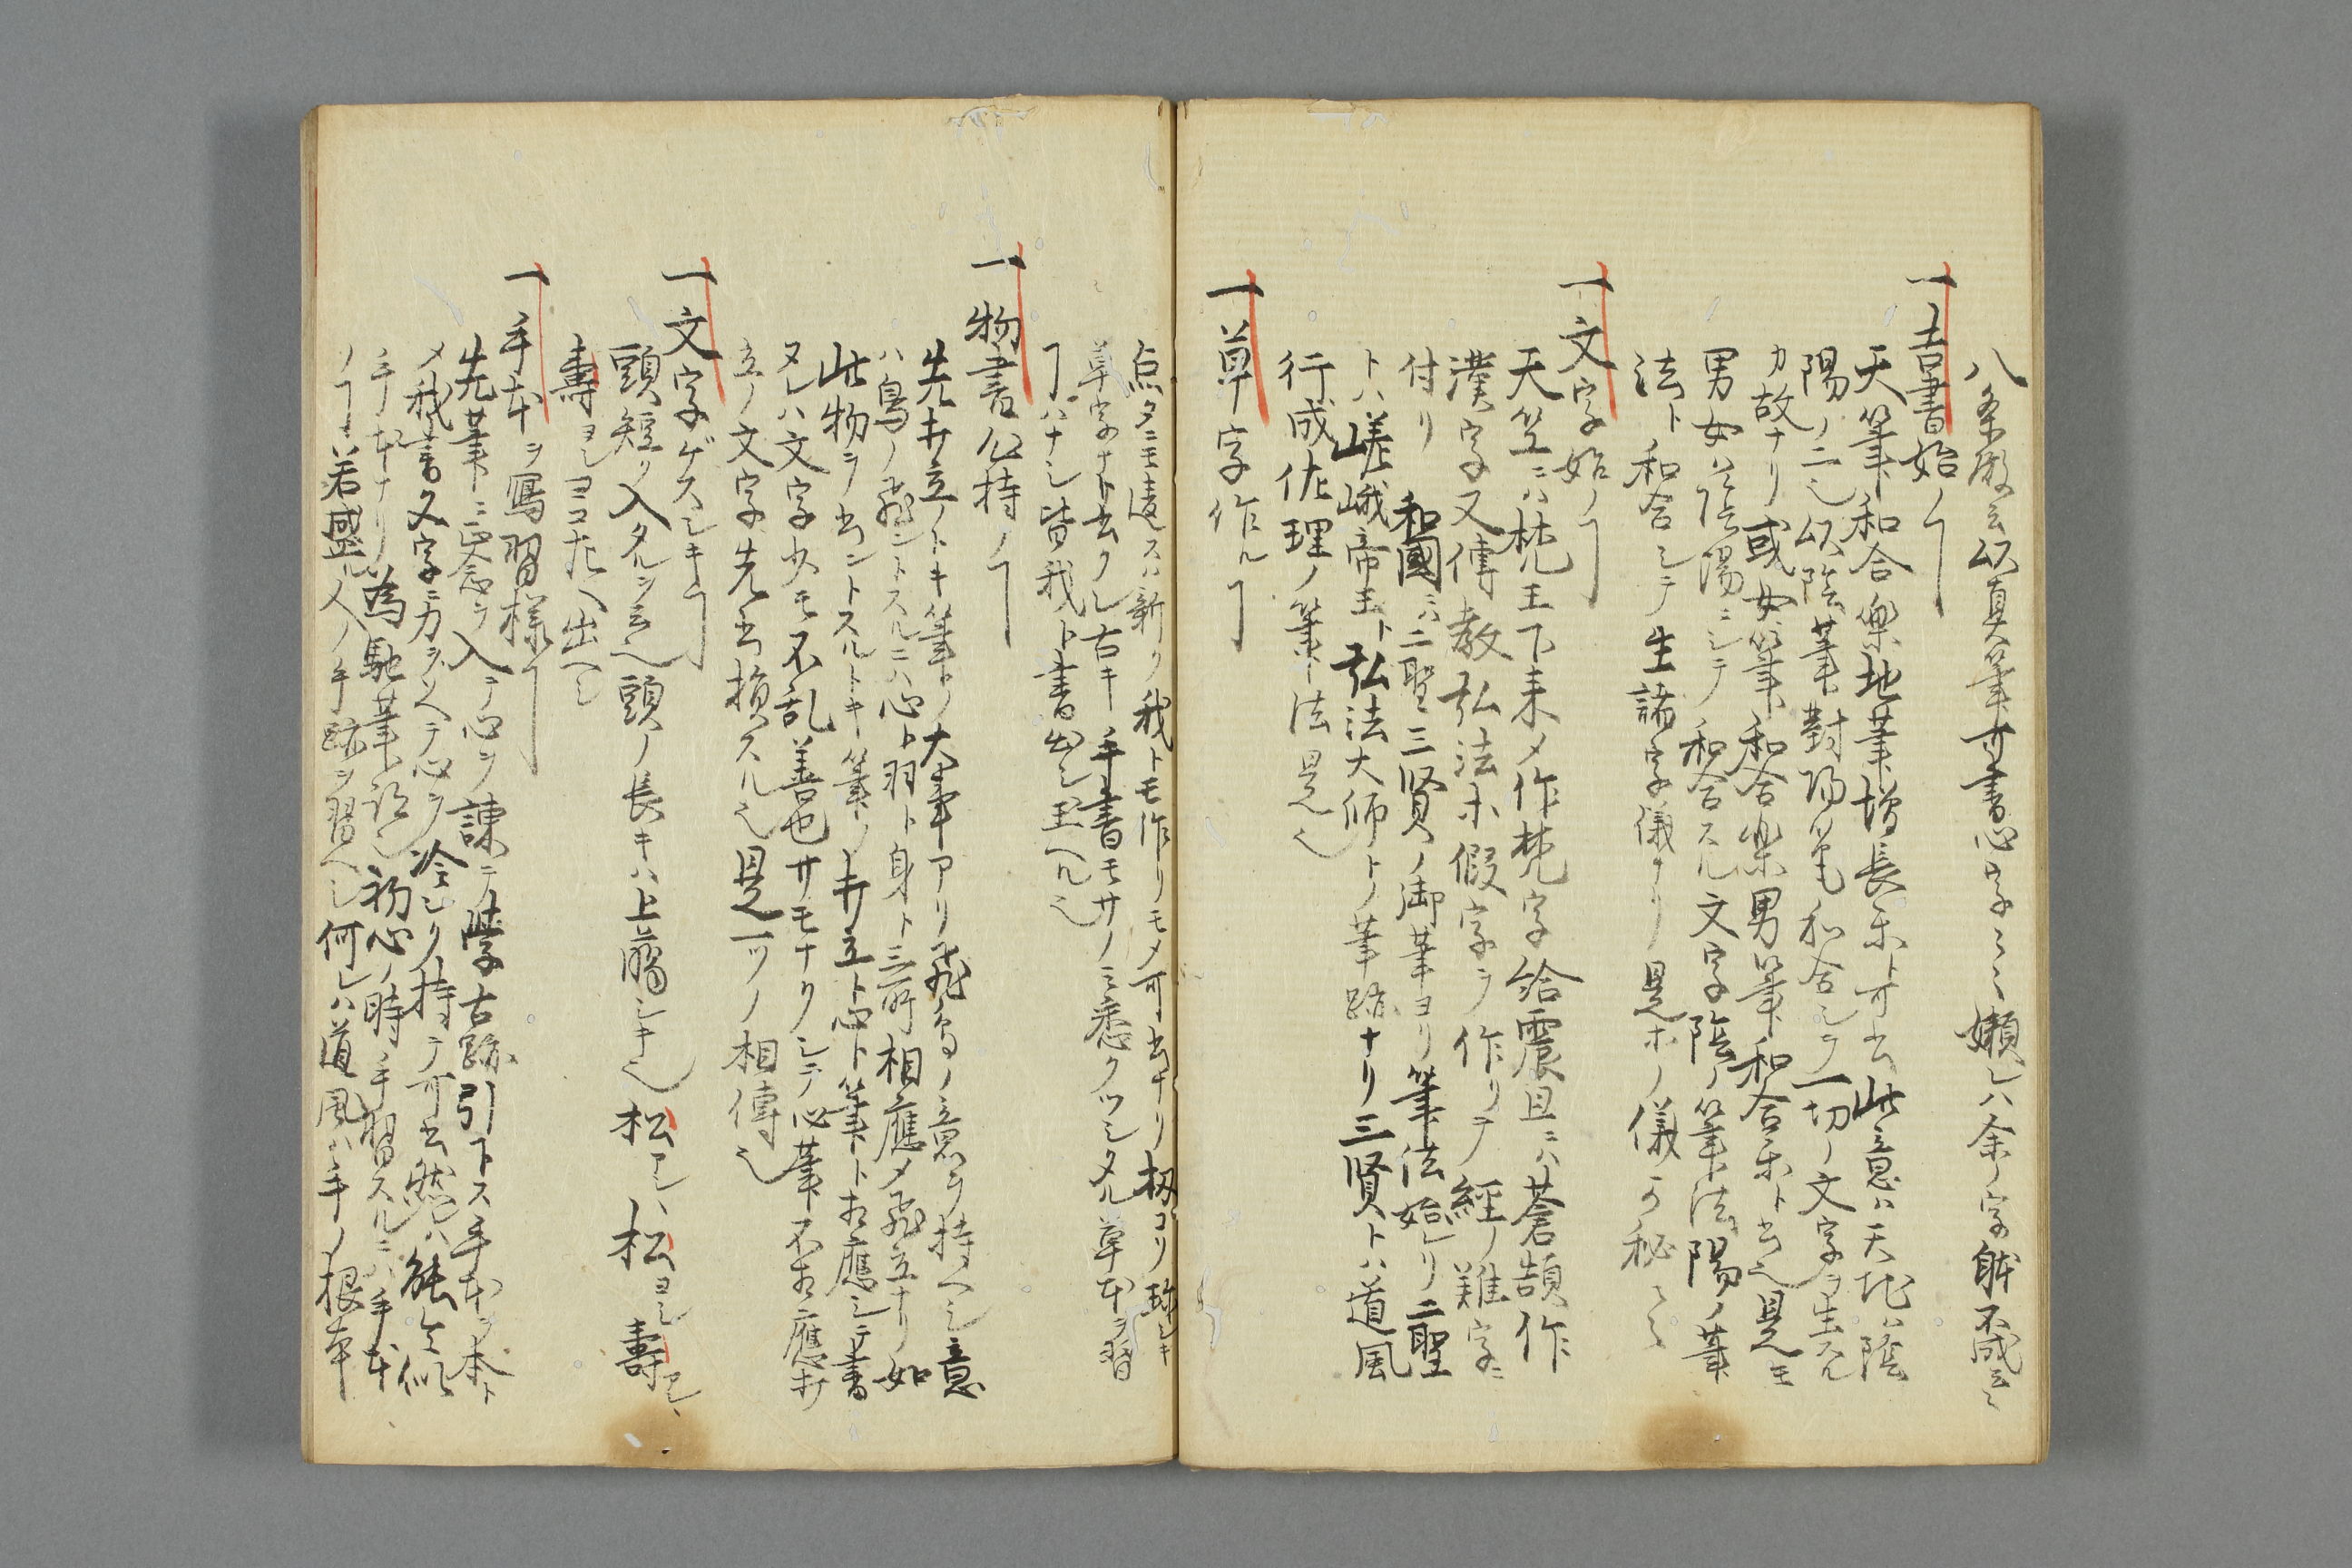 八条殿云以真筆サ書心字云云嬾レハ余ノ字皆不成云云
一吉書始ノヿ
天筆和合樂地筆増長楽ト可書此意ハ天地ハ陰
陽ノ二也以陰筆對陽筆和合シテ一切ノ文字ヲ生スル
カ故ナリ或女筆和合樂男筆和合楽ト書也是モ
男女ハ陰陽ニシテ和合スル文字陰ノ筆法陽ノ筆
法ト和合シテ生諸字儀ナリ是ホノ儀可秘云云
一文字始ノヿ
天竺ニハ梵王下来メ作梵字給震旦ニハ蒼頡作
漢字又傳教弘法ホ假字ヲ作リテ經ノ難字ニ
付リ 和國ニハ二聖三賢ノ御筆ヨリ筆法始レリ二聖
トハ嵯峨帝王ト弘法大師トノ筆跡ナリ三賢トハ道風
行成佐理ノ筆法是也
一草字作ルヿ
点タニモ違スハ新ク我トモ作リモメ可書ナリ扨コソ珍シキ
草字ナト書クレ古キ手書モサノミ悉クツシタル草本ヲ習
ヿハナシ皆我ト書出シ玉ヘル也
一物書公持ノヿ
先サ立ノトキ筆トノ大事アリ飛鳥ノ意ヲ持ヘシ意
ハ鳥ノ飛ントスルニハ心ト羽ト身ト三所相應メ飛立ナリ如
此物ヲ書ントスルトキ筆ノサ立ト心ト筆ト相應シテ書
タレハ文字少モ不乱善也サモナクシテ心筆不相應サ
立ノ文字先書損スル也是一ツノ相傳也
一文字ゲスシキヿ
頭短ク入タルヲ云也頭ノ長キハ上臈シキ也松アシ、松ヨシ壽アシ、
壽ヨシヨコたヘ出ヘシ
一手本ヲ寫習様ヿ
先筆ニ念ヲ入テ心ヲ諌テ學古跡引下ス手本ヲ本ト
メ我書文字ニカラヘテ心ヲ冷シク持テ可書然レハ能ク似
手本ナリ為馳筆訟シ初心ノ時手習スルニハ手本
ノヿハ若盛ル人ノ手跡ヲ習ヘシ何レハ道風ハ手ノ根本